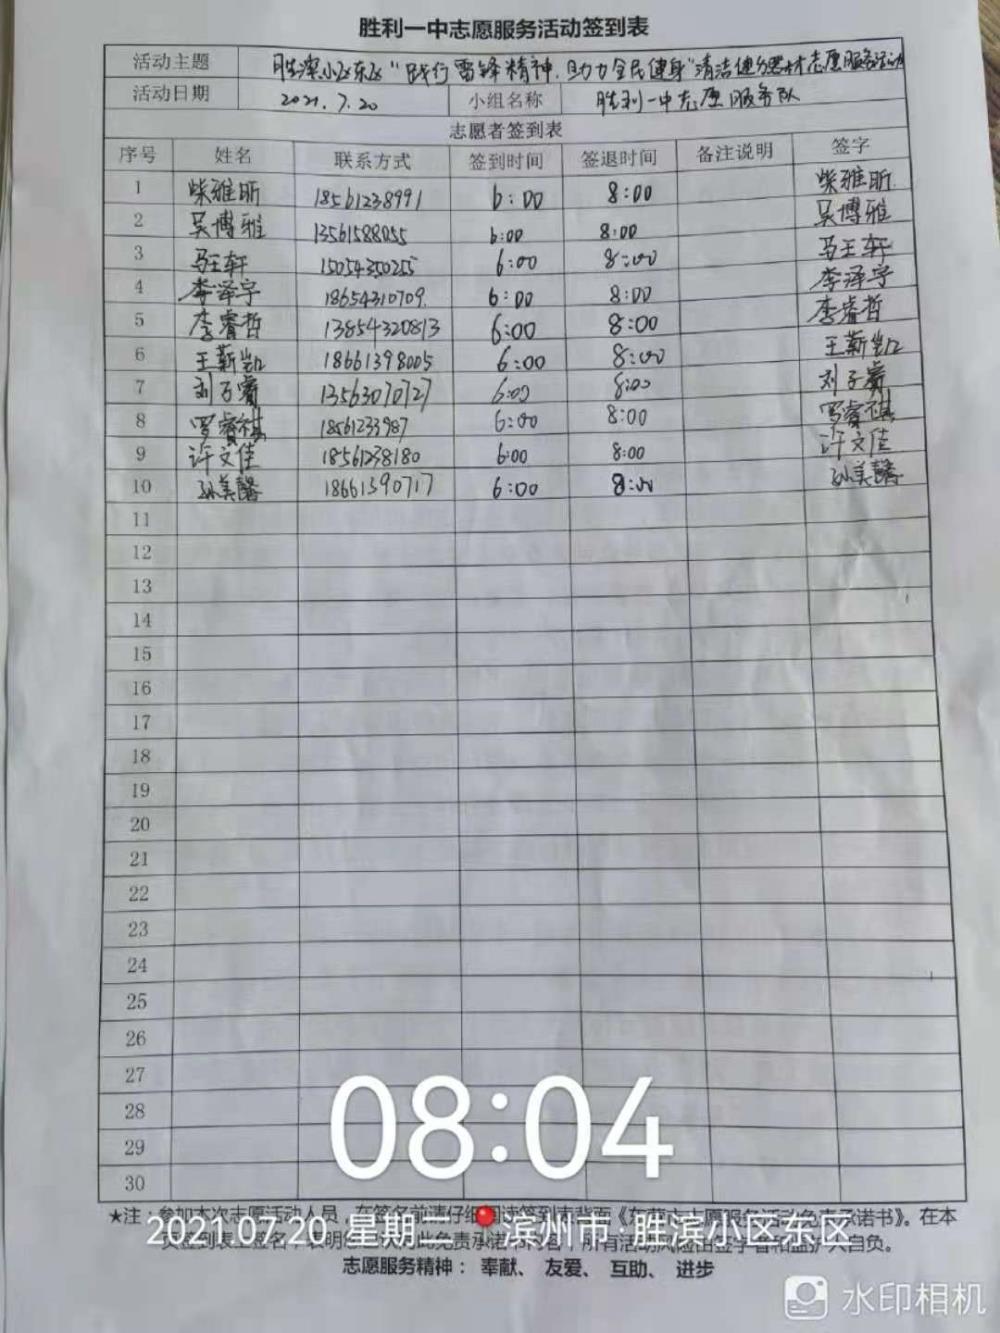 胜利一中志愿服务活动签到表
活动主题 胜滨小区东区“践行雷锋精神,助力全民健身”清洁健身器材志愿服务活动
活动日期 2021.7.20 小组名称 胜利一中志愿服务队
志愿者签到表
序号 姓名 联系方式 签到时间 签退时间 备注说明 签字
1 柴雅昕 18561238991 6:00 8:00 柴雅昕
2 吴博雅 13561588055 6:00 8:00 吴博雅
3 马王轩 15054350255 6:00 8:00 马王轩
4 李泽宇 18654310709 6:00 8:00 李泽宇
5 李睿哲 13854320813 6:00 8:00 李睿哲
6 王薪凯 18661398005 6:00 8:00 王薪凯
7 刘子睿 13563070727 6:00 8:00 刘子睿
8 罗睿祺 18561233987 6:00 8:00 罗睿祺
9 许文佳 18561238180 6:00 8:00 许文佳
10 孙美馨 18661390717 6:00 8:00 孙美馨
11
12
13
14
15
16
17
18
19
20
21
22
23
24
25
26
27
28
29
30
08:04
★注:参加本次志愿活动人员,在签名前请仔细阅读签到表背面《志愿服务活动免责承诺书》。在本
签到表上签名,表明您已认同此免责承诺书内容,所有活动风险由签字者和监护人自负。
2021.07.20 星期二 滨州市·胜滨小区东区
志愿服务精神: 奉献、 友爱、 互助、 进步
水印相机